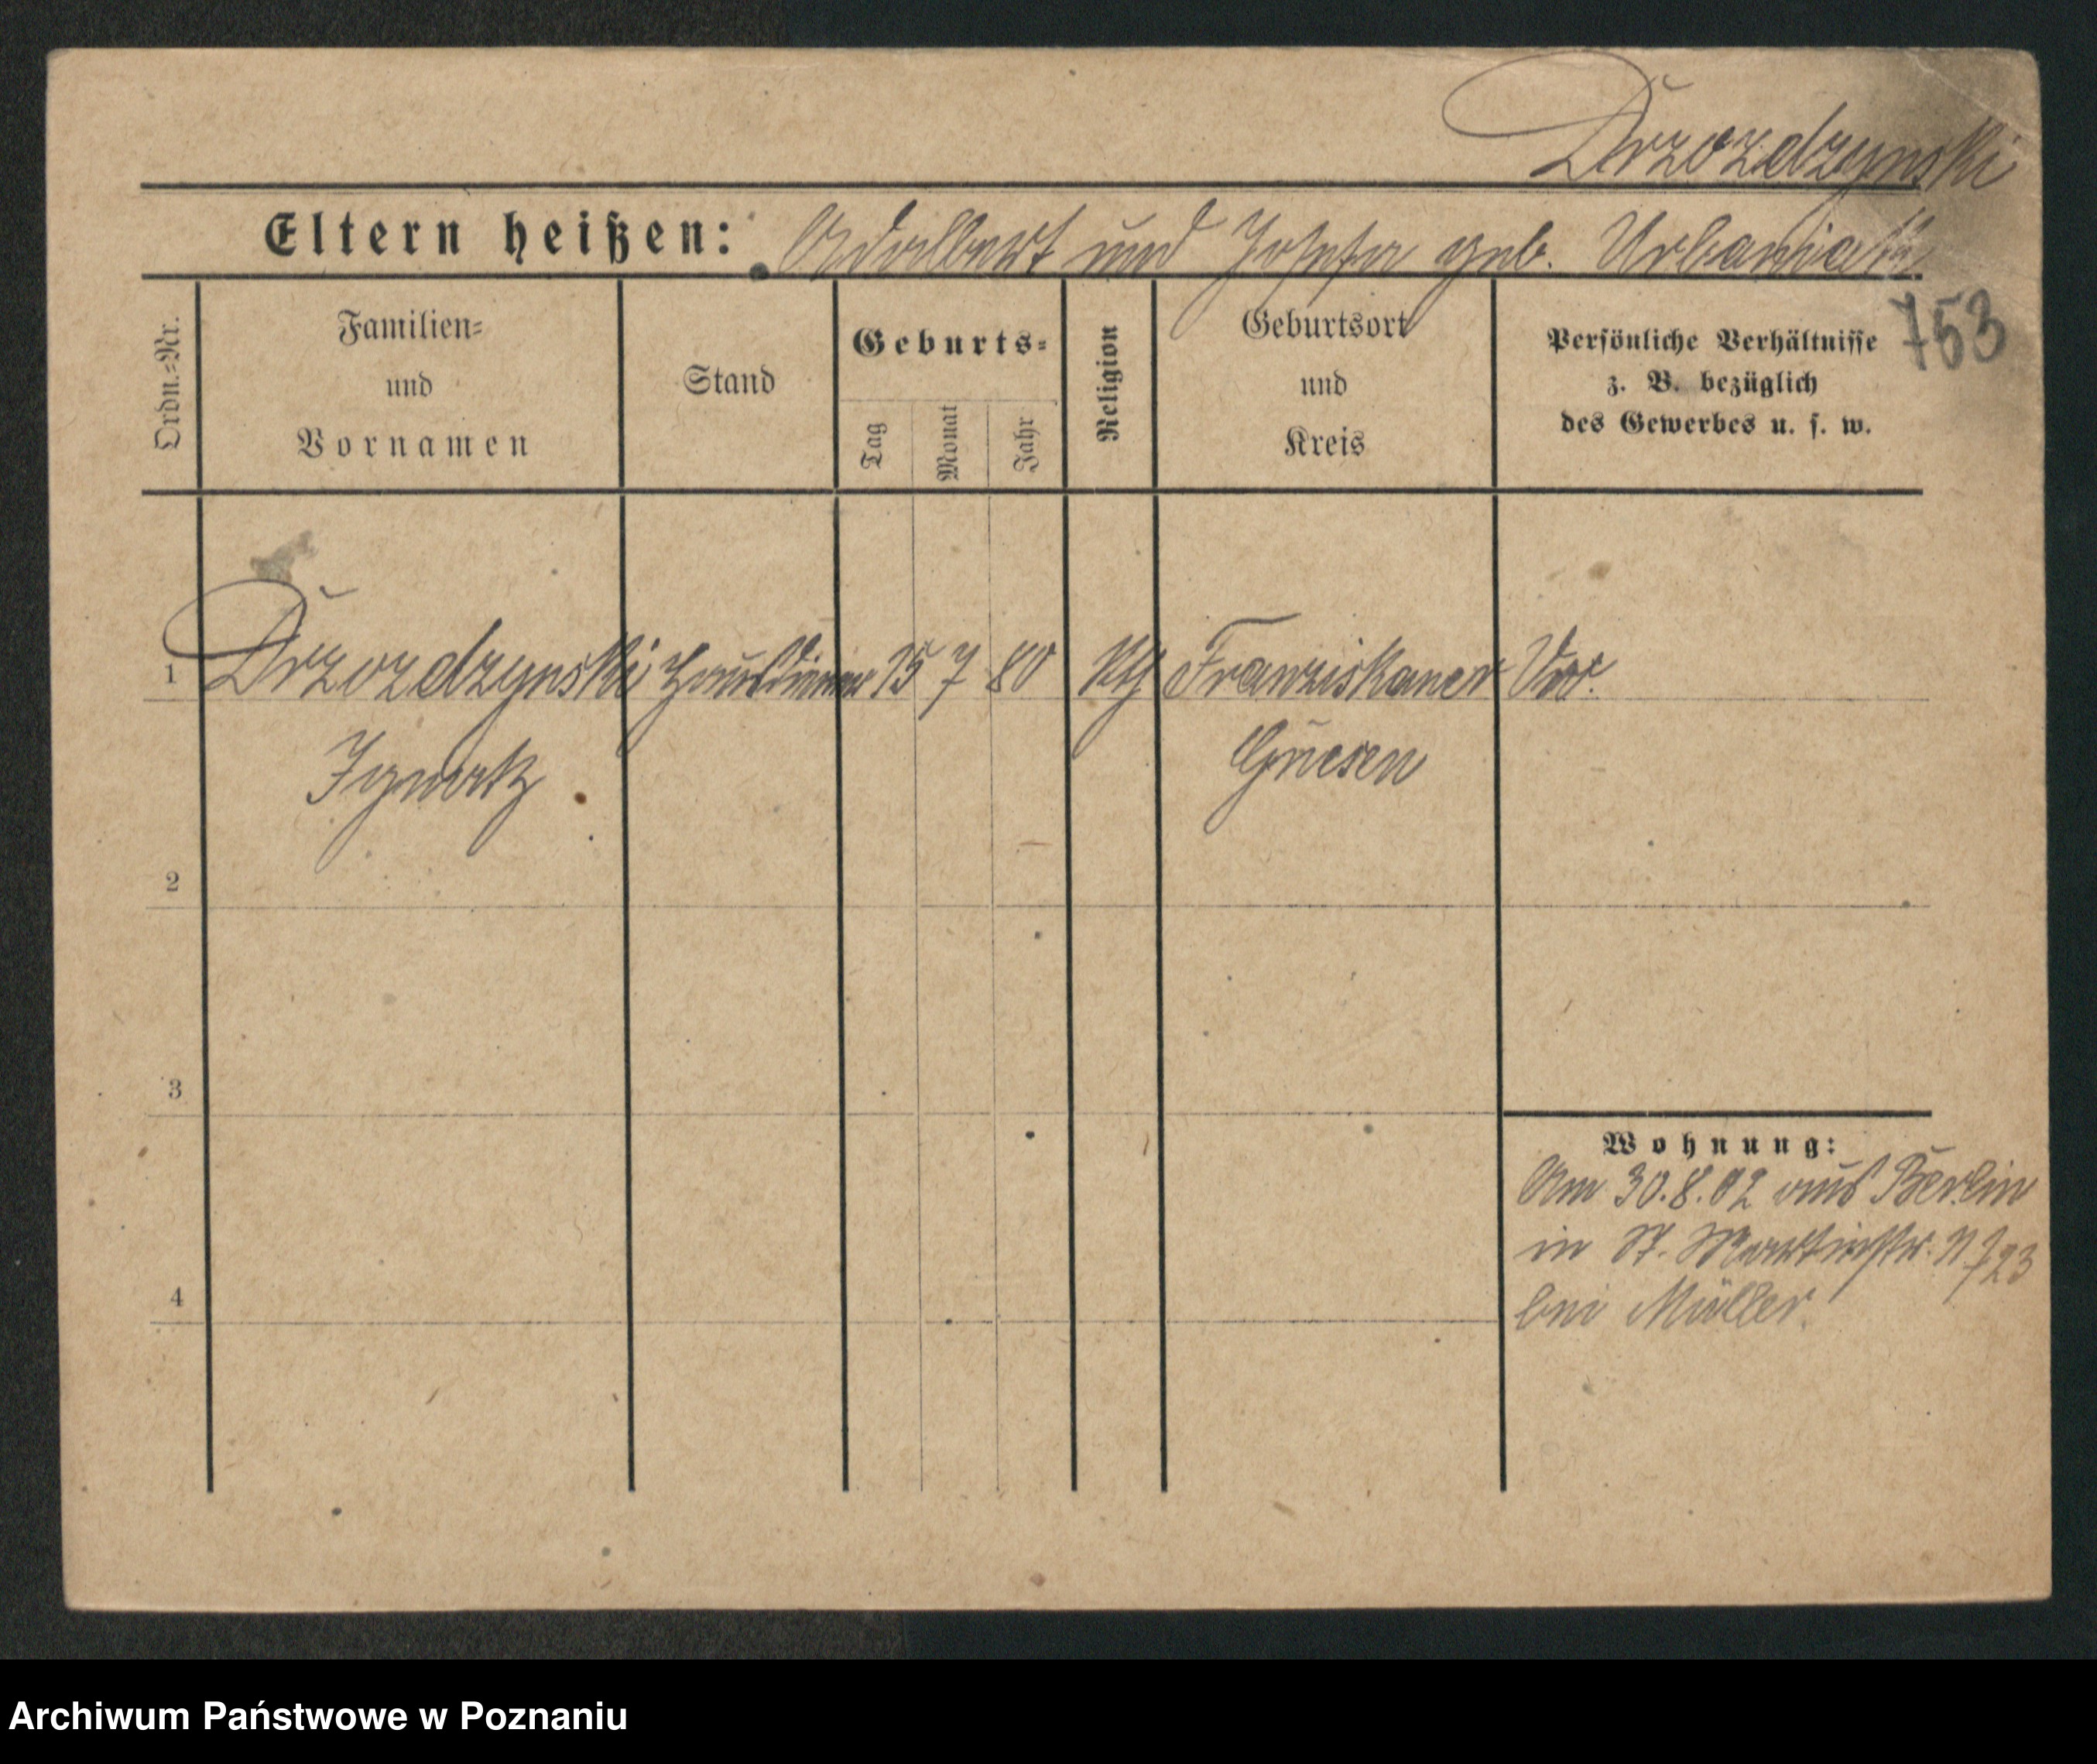 Drzozdzynski
Eltern heißen: Adalbert und Josefa geb. Urbaniak
753
Ordn.-Nr.
Familien-
und
Vornamen
Stand
Geburts-
Tag
Monat
Jahr
Religion
Geburtsort
und
Kreis
Persönliche Verhältnisse
z. B. bezüglich
des Gewerbes u. s. w.
1 Drzozdzynski Hausdiener 15 7 80 kth Franziskaner
Ignatz Gnesen
2
3
4
Wohnung:
Am 30.8.02 aus Berlin
in St. Martinstr. 23
bei Müller.
Archiwum Państwowe w Poznaniu